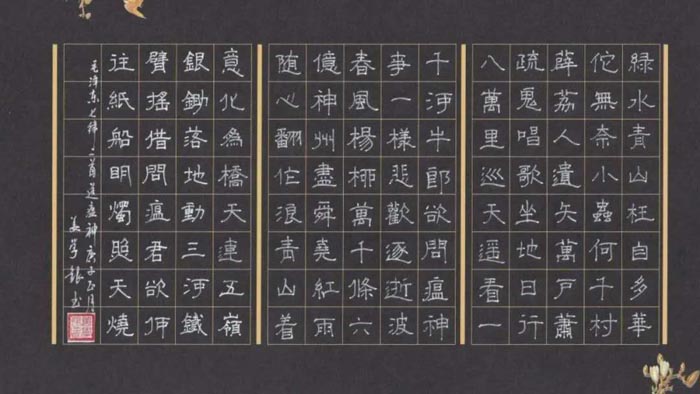 綠水青山枉自多華
佗無奈小蟲何千村
薜荔人遺矢萬戶蕭
疏鬼唱歌坐地日行
八萬里巡天遙看一
千河牛郎欲問瘟神
事一樣悲歡逐逝波
春風楊柳萬千條六
億神州盡舜堯紅雨
随心翻作浪青山着
意化為橋天連五嶺
銀鋤落地動三河鐵
臂搖借問瘟君欲何
往紙船明燭照天燒
毛泽东七律二首送瘟神庚子正月